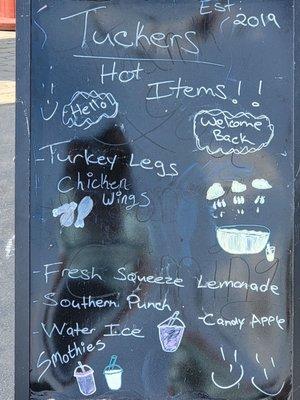 Est:
2019
Tuckers
Hot Items!!
Hello!
Welcome
Back
-Turkey Legs
Chicken
Wings
-Fresh Squeeze Lemonade
-Southern Punch
-Candy Apple
-Water Ice
Smothies